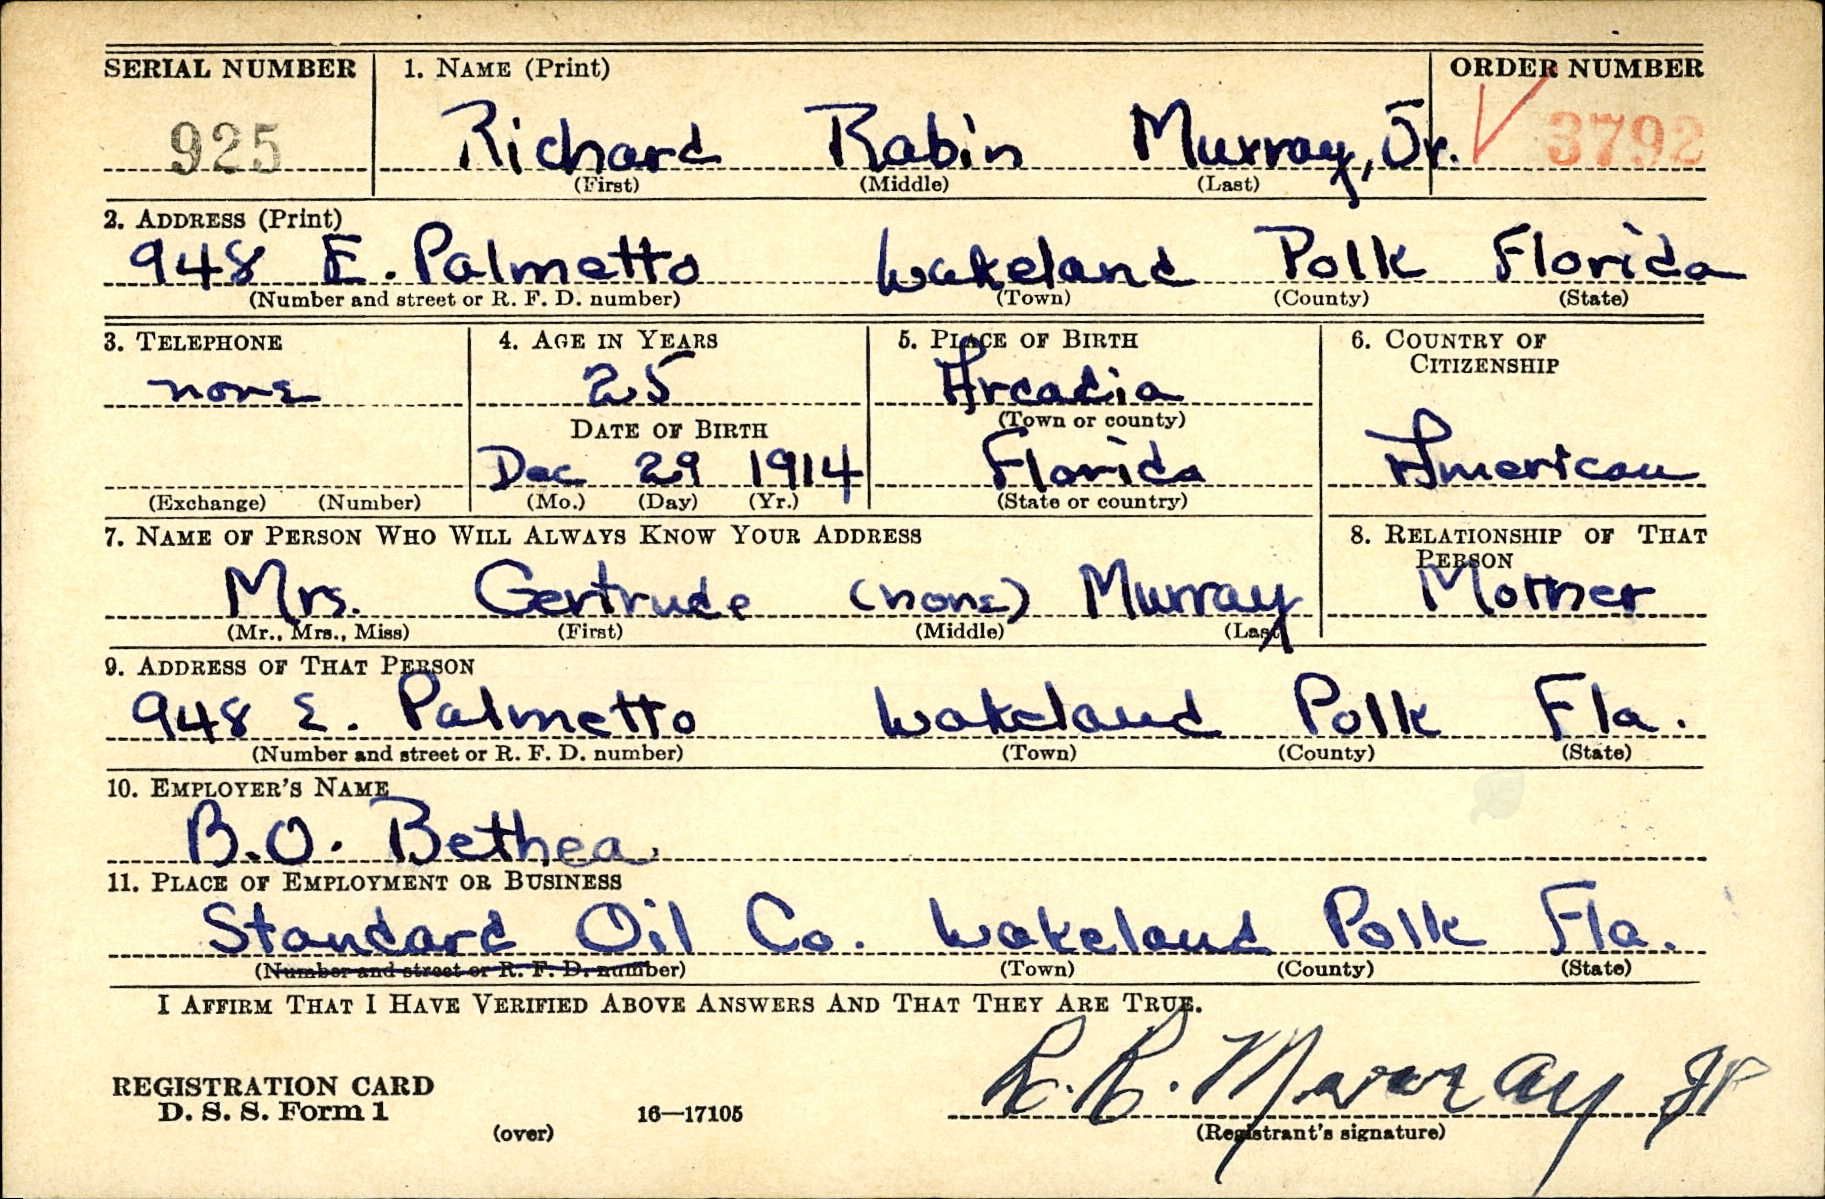 SERIAL NUMBER 1. NAME (Print) ORDER NUMBER
925 Richard Rabin Murray, Jr. 3792
(First) (Middle) (Last)
2. ADDRESS (Print)
948 E. Palmetto Lakeland Polk Florida
(Number and street or R. F. D. number) (Town) (County) (State)
3. TELEPHONE 4. AGE IN YEARS 5. PLACE OF BIRTH 6. COUNTRY OF CITIZENSHIP
none 25 Arcadia
DATE OF BIRTH (Town or county)
Dec 29 1914 Florida American
(Exchange) (Number) (Mo.) (Day) (Yr.) (State or country)
7. NAME OF PERSON WHO WILL ALWAYS KNOW YOUR ADDRESS 8. RELATIONSHIP OF THAT PERSON
Mrs. Gertrude (none) Murray Mother
(Mr., Mrs., Miss) (First) (Middle) (Last)
9. ADDRESS OF THAT PERSON
948 E. Palmetto Lakeland Polk Fla.
(Number and street or R. F. D. number) (Town) (County) (State)
10. EMPLOYER'S NAME
B.O. Bethea
11. PLACE OF EMPLOYMENT OR BUSINESS
Standard Oil Co. Lakeland Polk Fla.
(Number and street or R. F. D. number) (Town) (County) (State)
I AFFIRM THAT I HAVE VERIFIED ABOVE ANSWERS AND THAT THEY ARE TRUE.
R. R. Murray Jr
REGISTRATION CARD
D. S. S. Form 1 16—17105
(over) (Registrant's signature)